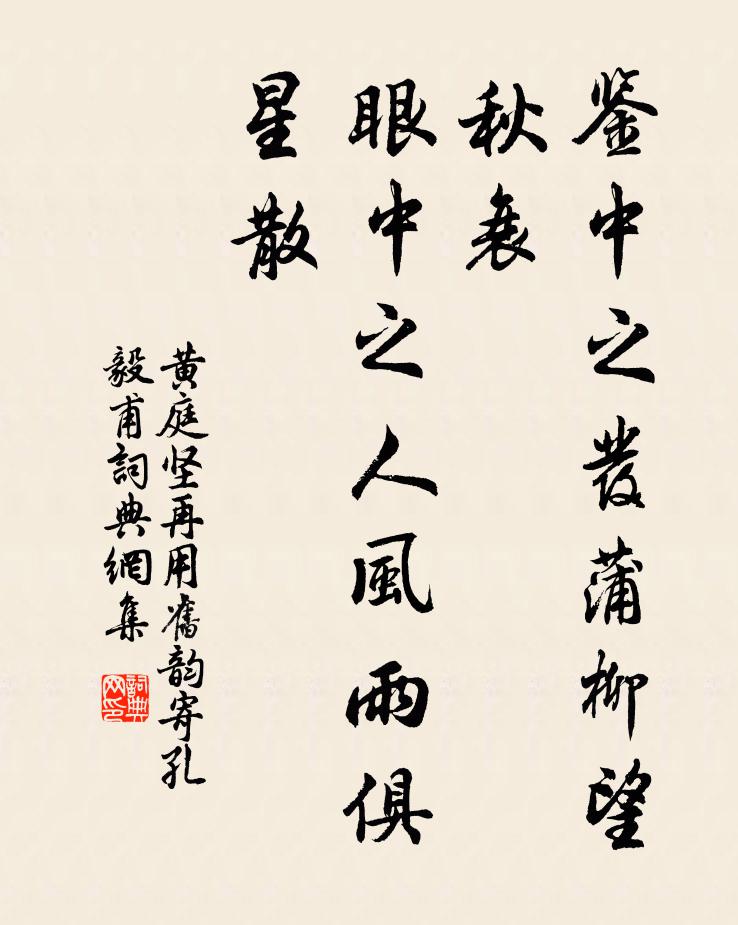 鉴中之發蒲柳望
秋衰
眼中之人風雨俱
星散
黄庭坚再用舊韵寄孔
毅甫詞典網集
詞典
网印